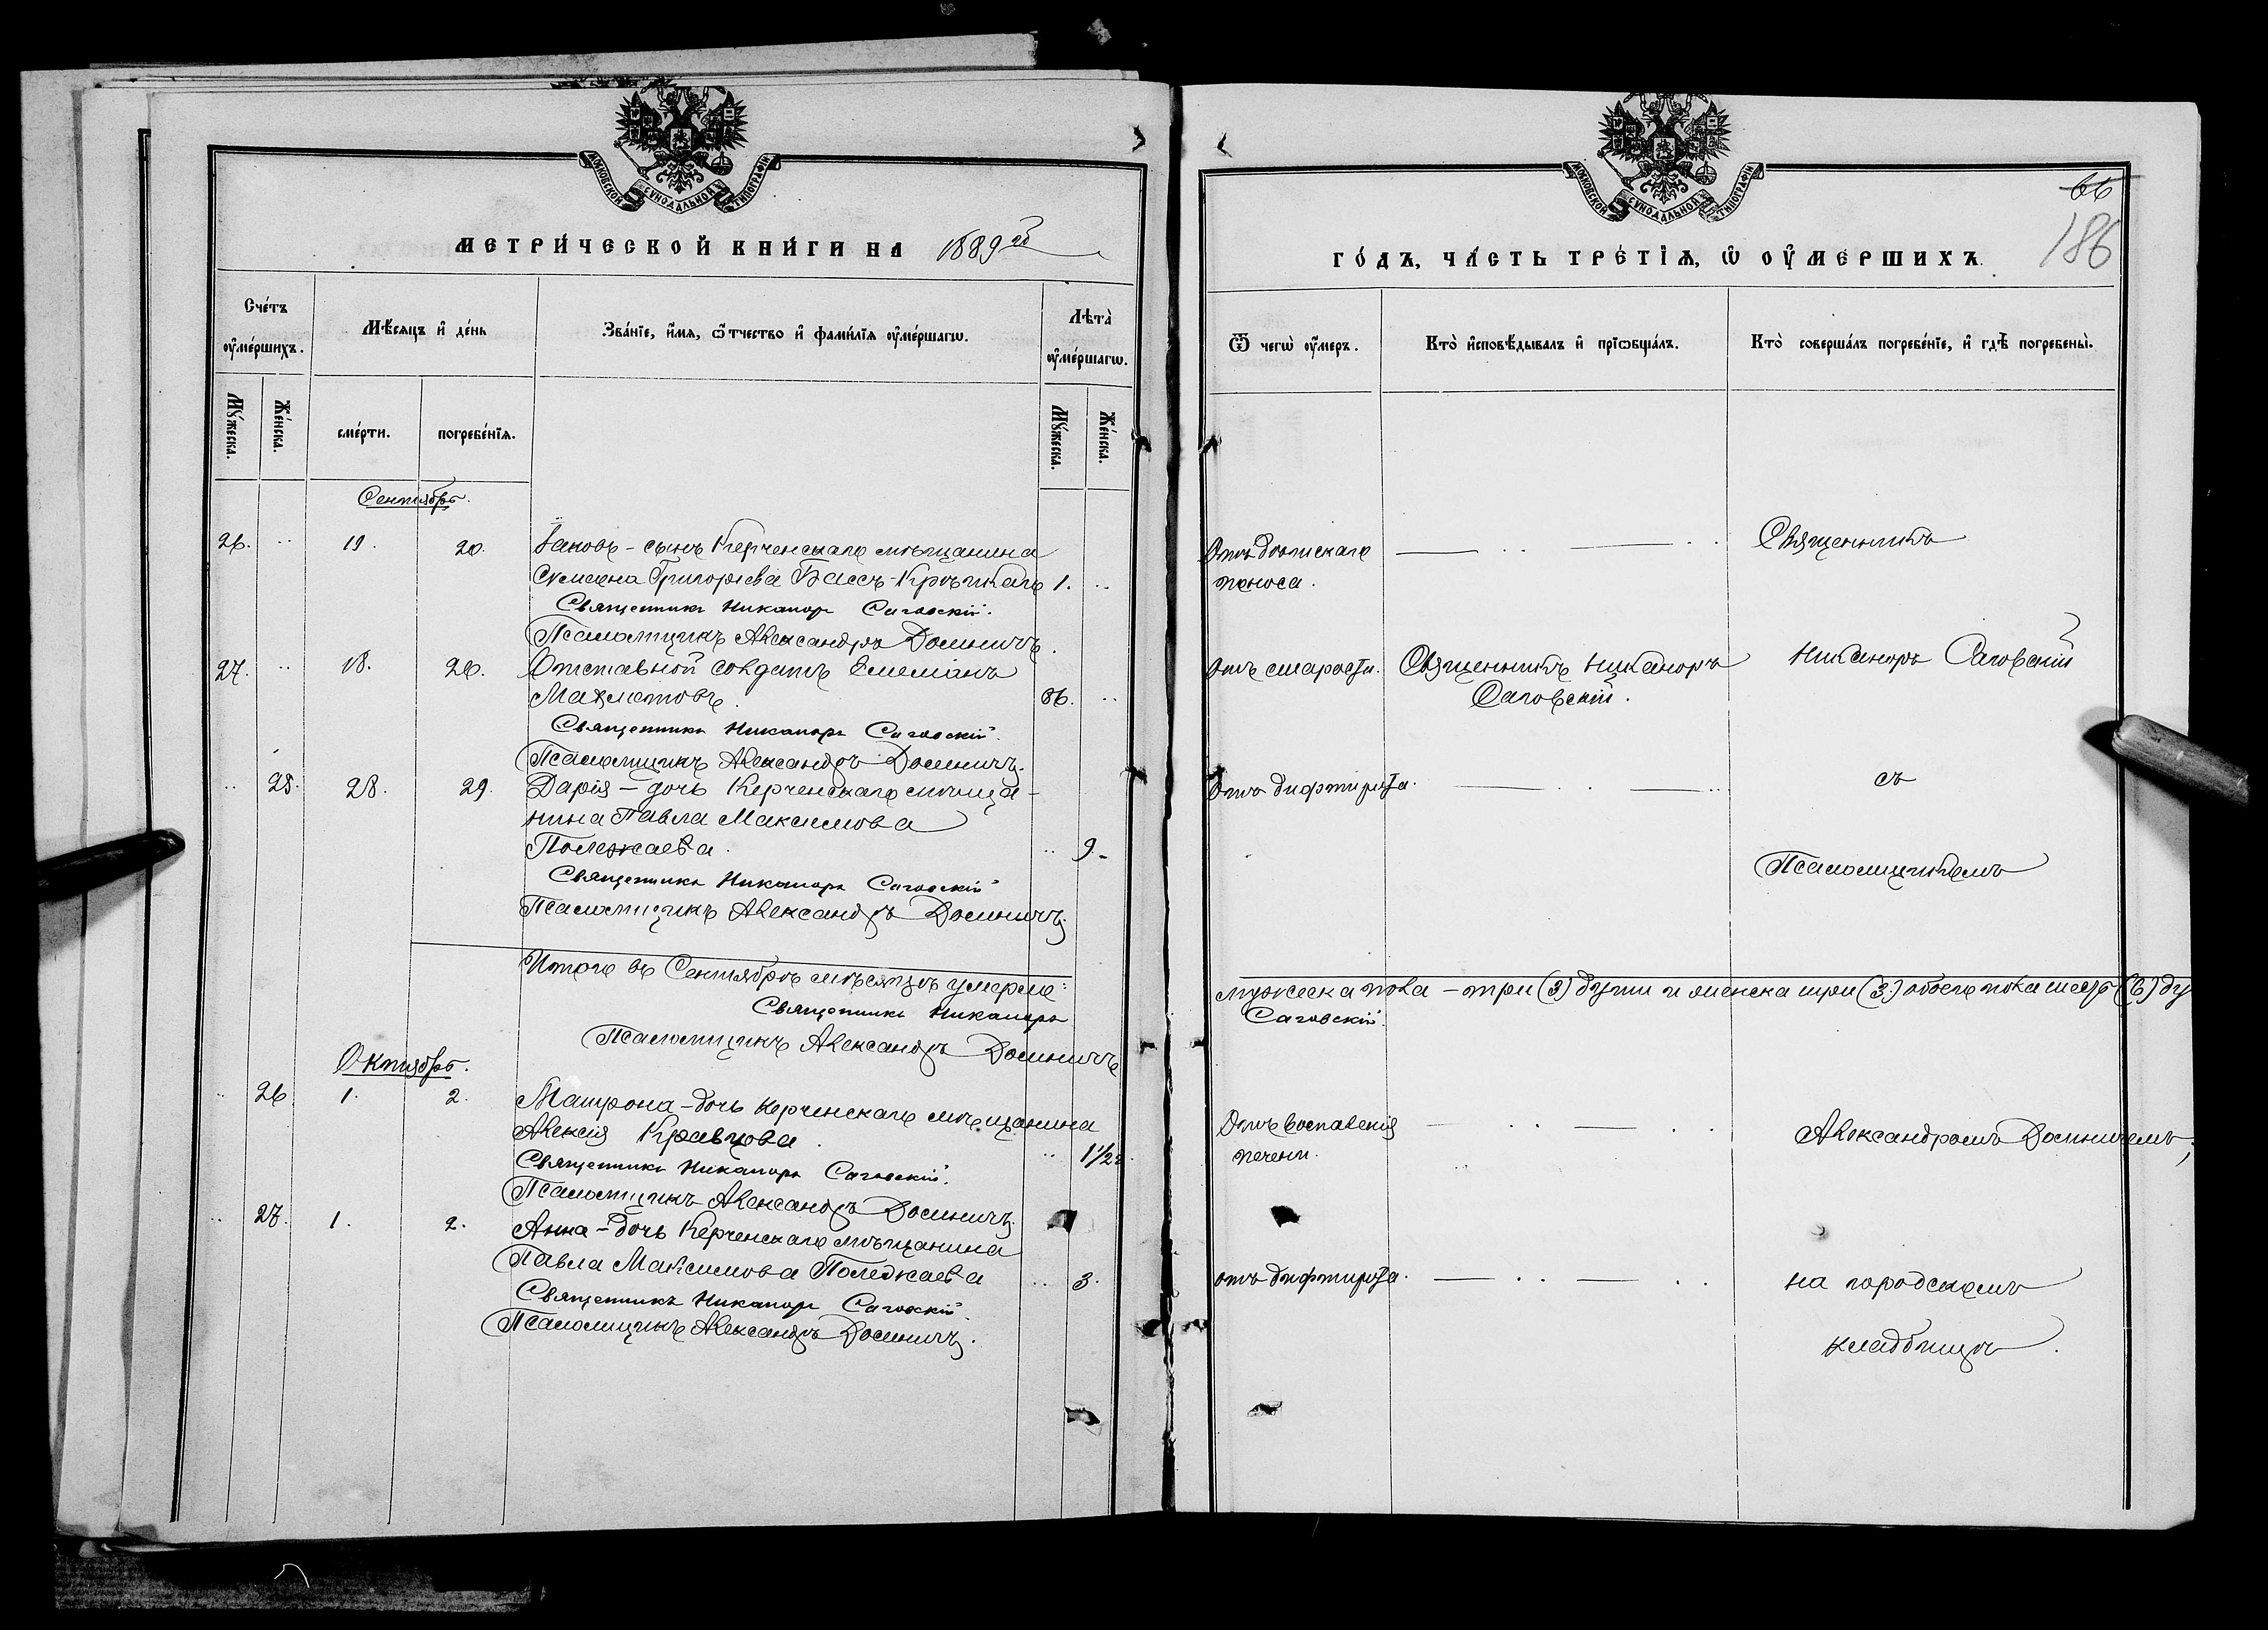 МОСКОВСКОЙ СУНОДАЛЬНОЙ ТИПОГРАФІИ
МЕТРИ́ЧЕСКОЙ КНИ́ГИ НА 1889 го́
Сче́тъ ᲂу҆ме́ршихъ.
Мѣ́сяцъ и҆ де́нь
Зва́нїе, и҆́мѧ, ѻ҆́тчество и҆ фами́лїѧ ᲂу҆ме́ршагѡ.
Лѣта̀ ᲂу҆ме́ршагѡ.
Мꙋ́жеска.
Же́нска.
сме́рти.
погребе́нїѧ.
Мꙋ́жеска.
Же́нска.
Сентябрь.
26. 19. 20. Іаковъ – сынъ Керченскаго мѣщанина
Симеона Григорьева Бассъ-Кр 1.
Священникъ Никаноръ Саговскій.
Псаломщикъ Александръ Досиничъ.
27. 18. 20. Отставной солдатъ Емеліанъ
Махметовъ. 86.
Священникъ Никаноръ Саговскій
Псаломщикъ Александръ Досиничъ.
25. 28. 29. Дарія – дочь Керченскаго мѣща-
нина Павла Максимова
Полежаева. 9.
Священникъ Никаноръ Саговскій
Псаломщикъ Александръ Досиничъ.
Итого въ Сентябрѣ мѣсяцѣ умерло:
Священникъ Никаноръ
Псаломщикъ Александръ Досиничъ
Октябрь.
26 1. 2. Матрона – дочь Керченскаго мѣщанина
Алексія Кравцова. 1 1/2
Священникъ Никаноръ Саговскій.
Псаломщикъ Александръ Досиничъ.
27. 1. 2. Анна – дочь Керченскаго мѣщанина
Павла Максимова Полежаева 3.
Священникъ Никаноръ Саговскій.
Псаломщикъ Александръ Досиничъ.
МОСКОВСКОЙ СУНОДАЛЬНОЙ ТИПОГРАФІИ
66
186
ГО́ДЪ, ЧА́СТЬ ТРЕ́ТЇѦ, Ѡ҆ ОУ҆МЕ́РШИХЪ.
Ѿ чегѡ̀ ᲂу҆́меръ.
Кто̀ и҆сповѣ́дывалъ и҆ прїѡбща́лъ.
Кто̀ соверша́лъ погребе́нїе, и҆ гдѣ̀ погребены̀.
Отъ дѣтскаго
поноса.
Священникъ
отъ старости. Священникъ Никаноръ
Саговскій.
Никаноръ Саговскій
Отъ дифтирита.
съ
Псаломщикомъ
мужеска пола – три (3) души и женска три (3) обоего пола шесть (6) ду
Саговскій.
Отъ воспаленія
печени.
Александромъ Досиничемъ,
отъ дифтирита.
на городскомъ
кладбищѣ.